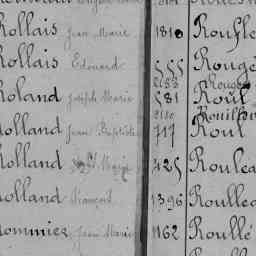 Rollais Jean Marie 1810 Roufle
Rollais Edouard 555 Rougé
2153 Rouge
Roland Joseph Marie 581 Roul
2110 Rouillon
Rolland Jean Baptiste 717 Roul
Rolland Marie 425 Roulea
Rolland François 1396 Roullea
Rommier Jean Marie 1162 Roullé